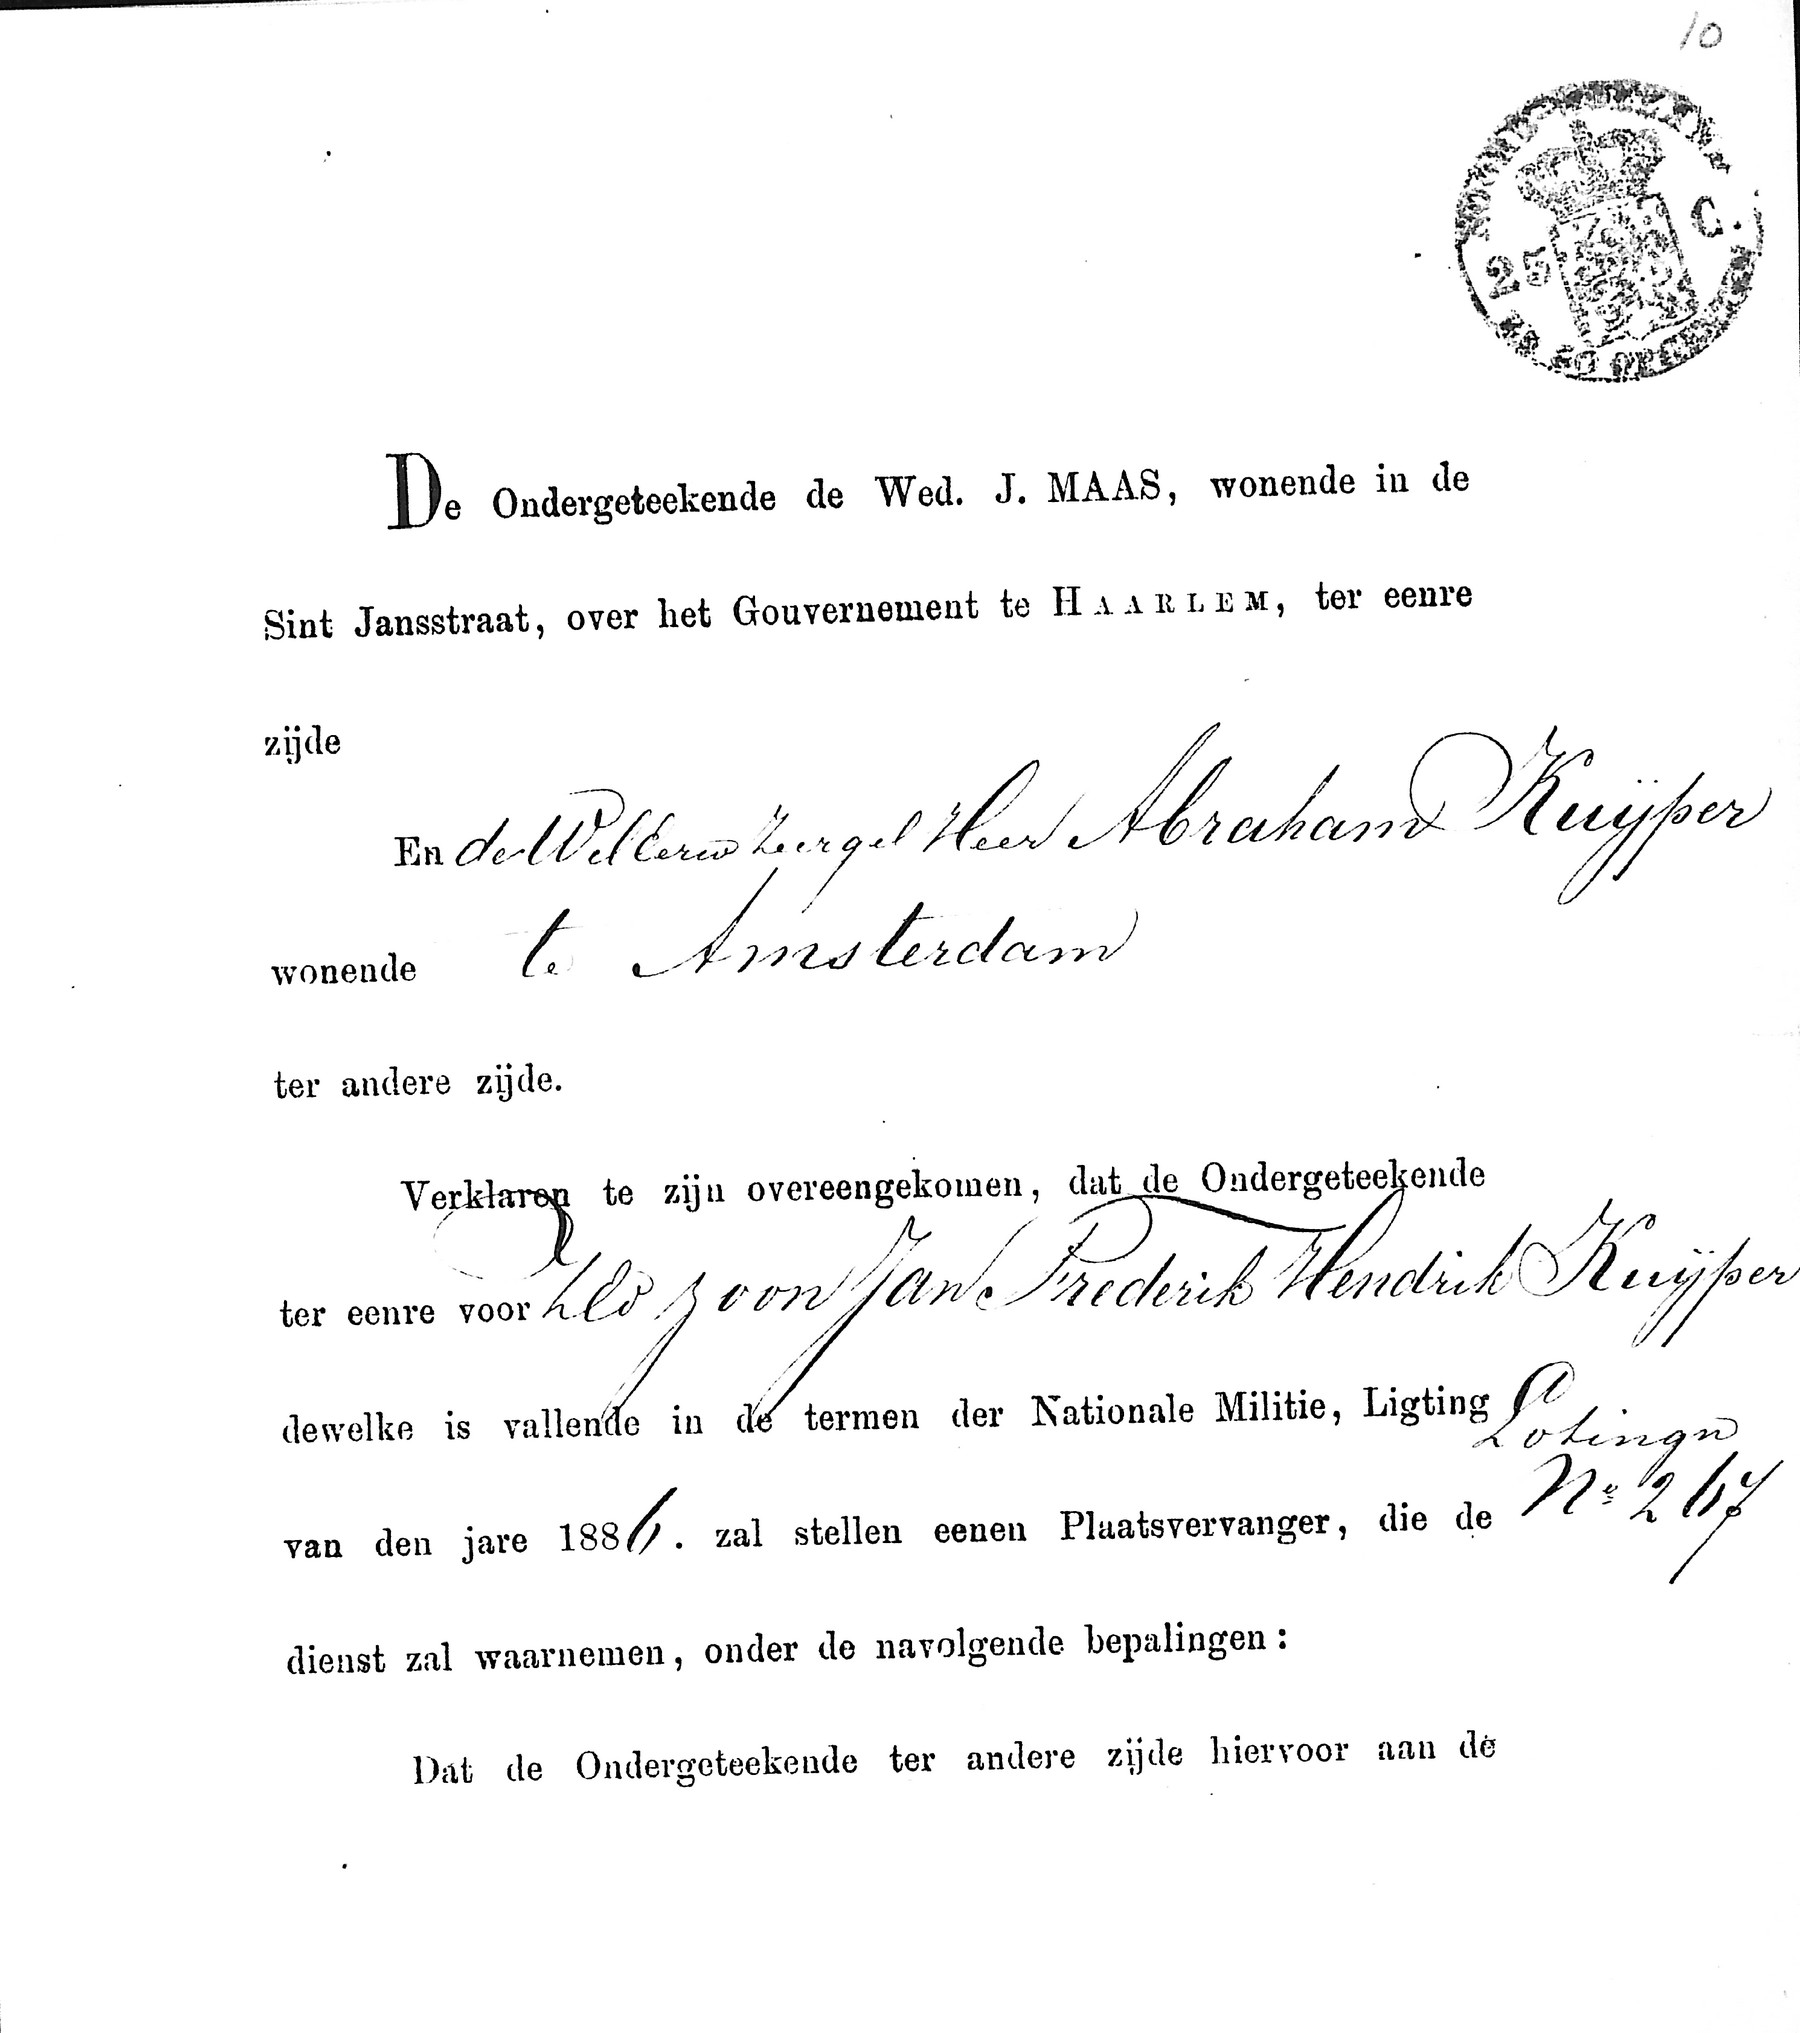 10
25 C.
De Ondergeteekende de Wed. J. MAAS, wonende in de
Sint Jansstraat, over het Gouvernement te HAARLEM, ter eenre
zijde
En de WelEerw zeergel Heer Abraham Kuÿper
wonende te Amsterdam
ter andere zijde.
Verklaren te zijn overeengekomen, dat de Ondergeteekende
ter eenre voor zoon Jan Frederik Hendrik Kuÿper
dewelke is vallende in de termen der Nationale Militie, Ligting
Lotingn
van den jare 1886. zal stellen eenen Plaatsvervanger, die de
No 267
dienst zal waarnemen, onder de navolgende bepalingen:
Dat de Ondergeteekende ter andere zijde hiervoor aan de